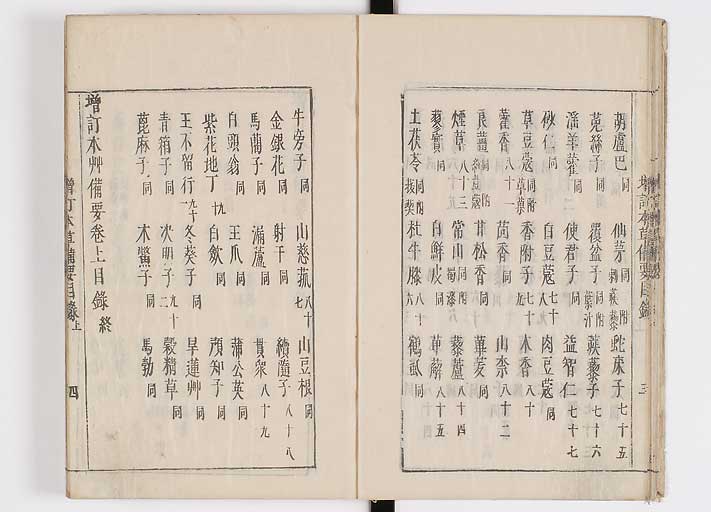 胡蘆巴同 仙茅同 蛇床子七十五
菟絲子同 覆盆子同附 蒺藜子七十六
淫羊藿同 使君子七十 益智仁七十七
砂仁同 白豆蔻七十八 肉豆蔻同
草豆蔻同附草菓 香附七十 木香同
藿香八十一 茴香同 山柰八十二
良薑同附 甘松香同 蓽茇同
煙草八十三 常山同附蜀漆 藜蘆八十四
蓼實同 白鮮皮同 萆薢八十五
土茯苓同附 杜牛膝八十六 鶴蝨同
牛旁子同 山慈菰八十七 山豆根同
金銀花同 射干同 續隨子八十八
馬藺子同 漏蘆同 貫衆八十九
白頭翁同 王瓜同 蒲公英同
紫花地丁九十 白歛同 預知子同
王不留行九十一 冬葵子同 旱蓮艸同
青箱子同 决明子九十二 穀精草同
蓖麻子同 木鱉子同 馬勃同
增訂本艸備要卷上目錄終
增訂本草備要目錄上 四